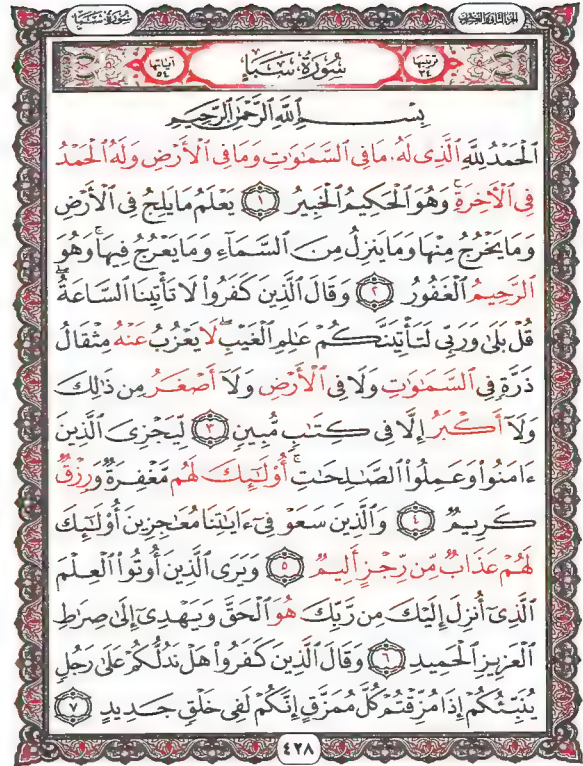 سُورَةُ سَبَإٍ
الجزء الثاني والعشرون
آياتها ٥٤
سُورَةُ سَبَإٍ
ترتيبها ٣٤
بِسْمِ ٱللَّهِ ٱلرَّحْمَٰنِ ٱلرَّحِيمِ
ٱلْحَمْدُ لِلَّهِ ٱلَّذِى لَهُۥ مَا فِى ٱلسَّمَٰوَٰتِ وَمَا فِى ٱلْأَرْضِ وَلَهُ ٱلْحَمْدُ
فِى ٱلْءَاخِرَةِ ۚ وَهُوَ ٱلْحَكِيمُ ٱلْخَبِيرُ ١ يَعْلَمُ مَا يَلِجُ فِى ٱلْأَرْضِ
وَمَا يَخْرُجُ مِنْهَا وَمَا يَنزِلُ مِنَ ٱلسَّمَآءِ وَمَا يَعْرُجُ فِيهَا ۚ وَهُوَ
ٱلرَّحِيمُ ٱلْغَفُورُ ٢ وَقَالَ ٱلَّذِينَ كَفَرُوا۟ لَا تَأْتِينَا ٱلسَّاعَةُ ۖ
قُلْ بَلَىٰ وَرَبِّى لَتَأْتِيَنَّكُمْ عَٰلِمِ ٱلْغَيْبِ ۖ لَا يَعْزُبُ عَنْهُ مِثْقَالُ
ذَرَّةٍ فِى ٱلسَّمَٰوَٰتِ وَلَا فِى ٱلْأَرْضِ وَلَآ أَصْغَرُ مِن ذَٰلِكَ
وَلَآ أَكْبَرُ إِلَّا فِى كِتَٰبٍ مُّبِينٍ ٣ لِّيَجْزِىَ ٱلَّذِينَ
ءَامَنُوا۟ وَعَمِلُوا۟ ٱلصَّٰلِحَٰتِ ۚ أُو۟لَٰٓئِكَ لَهُم مَّغْفِرَةٌ وَرِزْقٌ
كَرِيمٌ ٤ وَٱلَّذِينَ سَعَوْ فِىٓ ءَايَٰتِنَا مُعَٰجِزِينَ أُو۟لَٰٓئِكَ
لَهُمْ عَذَابٌ مِّن رِّجْزٍ أَلِيمٌ ٥ وَيَرَى ٱلَّذِينَ أُوتُوا۟ ٱلْعِلْمَ
ٱلَّذِىٓ أُنزِلَ إِلَيْكَ مِن رَّبِّكَ هُوَ ٱلْحَقَّ وَيَهْدِىٓ إِلَىٰ صِرَٰطِ
ٱلْعَزِيزِ ٱلْحَمِيدِ ٦ وَقَالَ ٱلَّذِينَ كَفَرُوا۟ هَلْ نَدُلُّكُمْ عَلَىٰ رَجُلٍ
يُنَبِّئُكُمْ إِذَا مُزِّقْتُمْ كُلَّ مُمَزَّقٍ إِنَّكُمْ لَفِى خَلْقٍ جَدِيدٍ ٧
٤٢٨